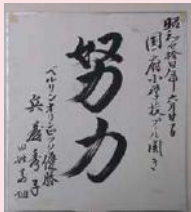 昭和廿拾四年六月廿一日
国府小学校プール開き
努力
ベルリンオリンピック優勝
兵藤秀子